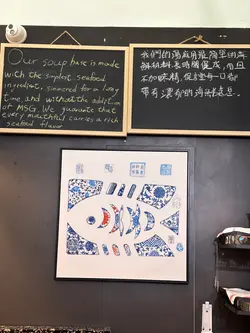 Our soup base is made
with the simplest seafood
ingredient, simmered for a long
time, and without the addition
of MSG. We guarantee that
every mouthful carries a rich
seafood flavor.
我们的汤底用最简单的海
鲜材料长时间熬成,而且
不加味精,保证每一口都
带有浓郁的海鲜味